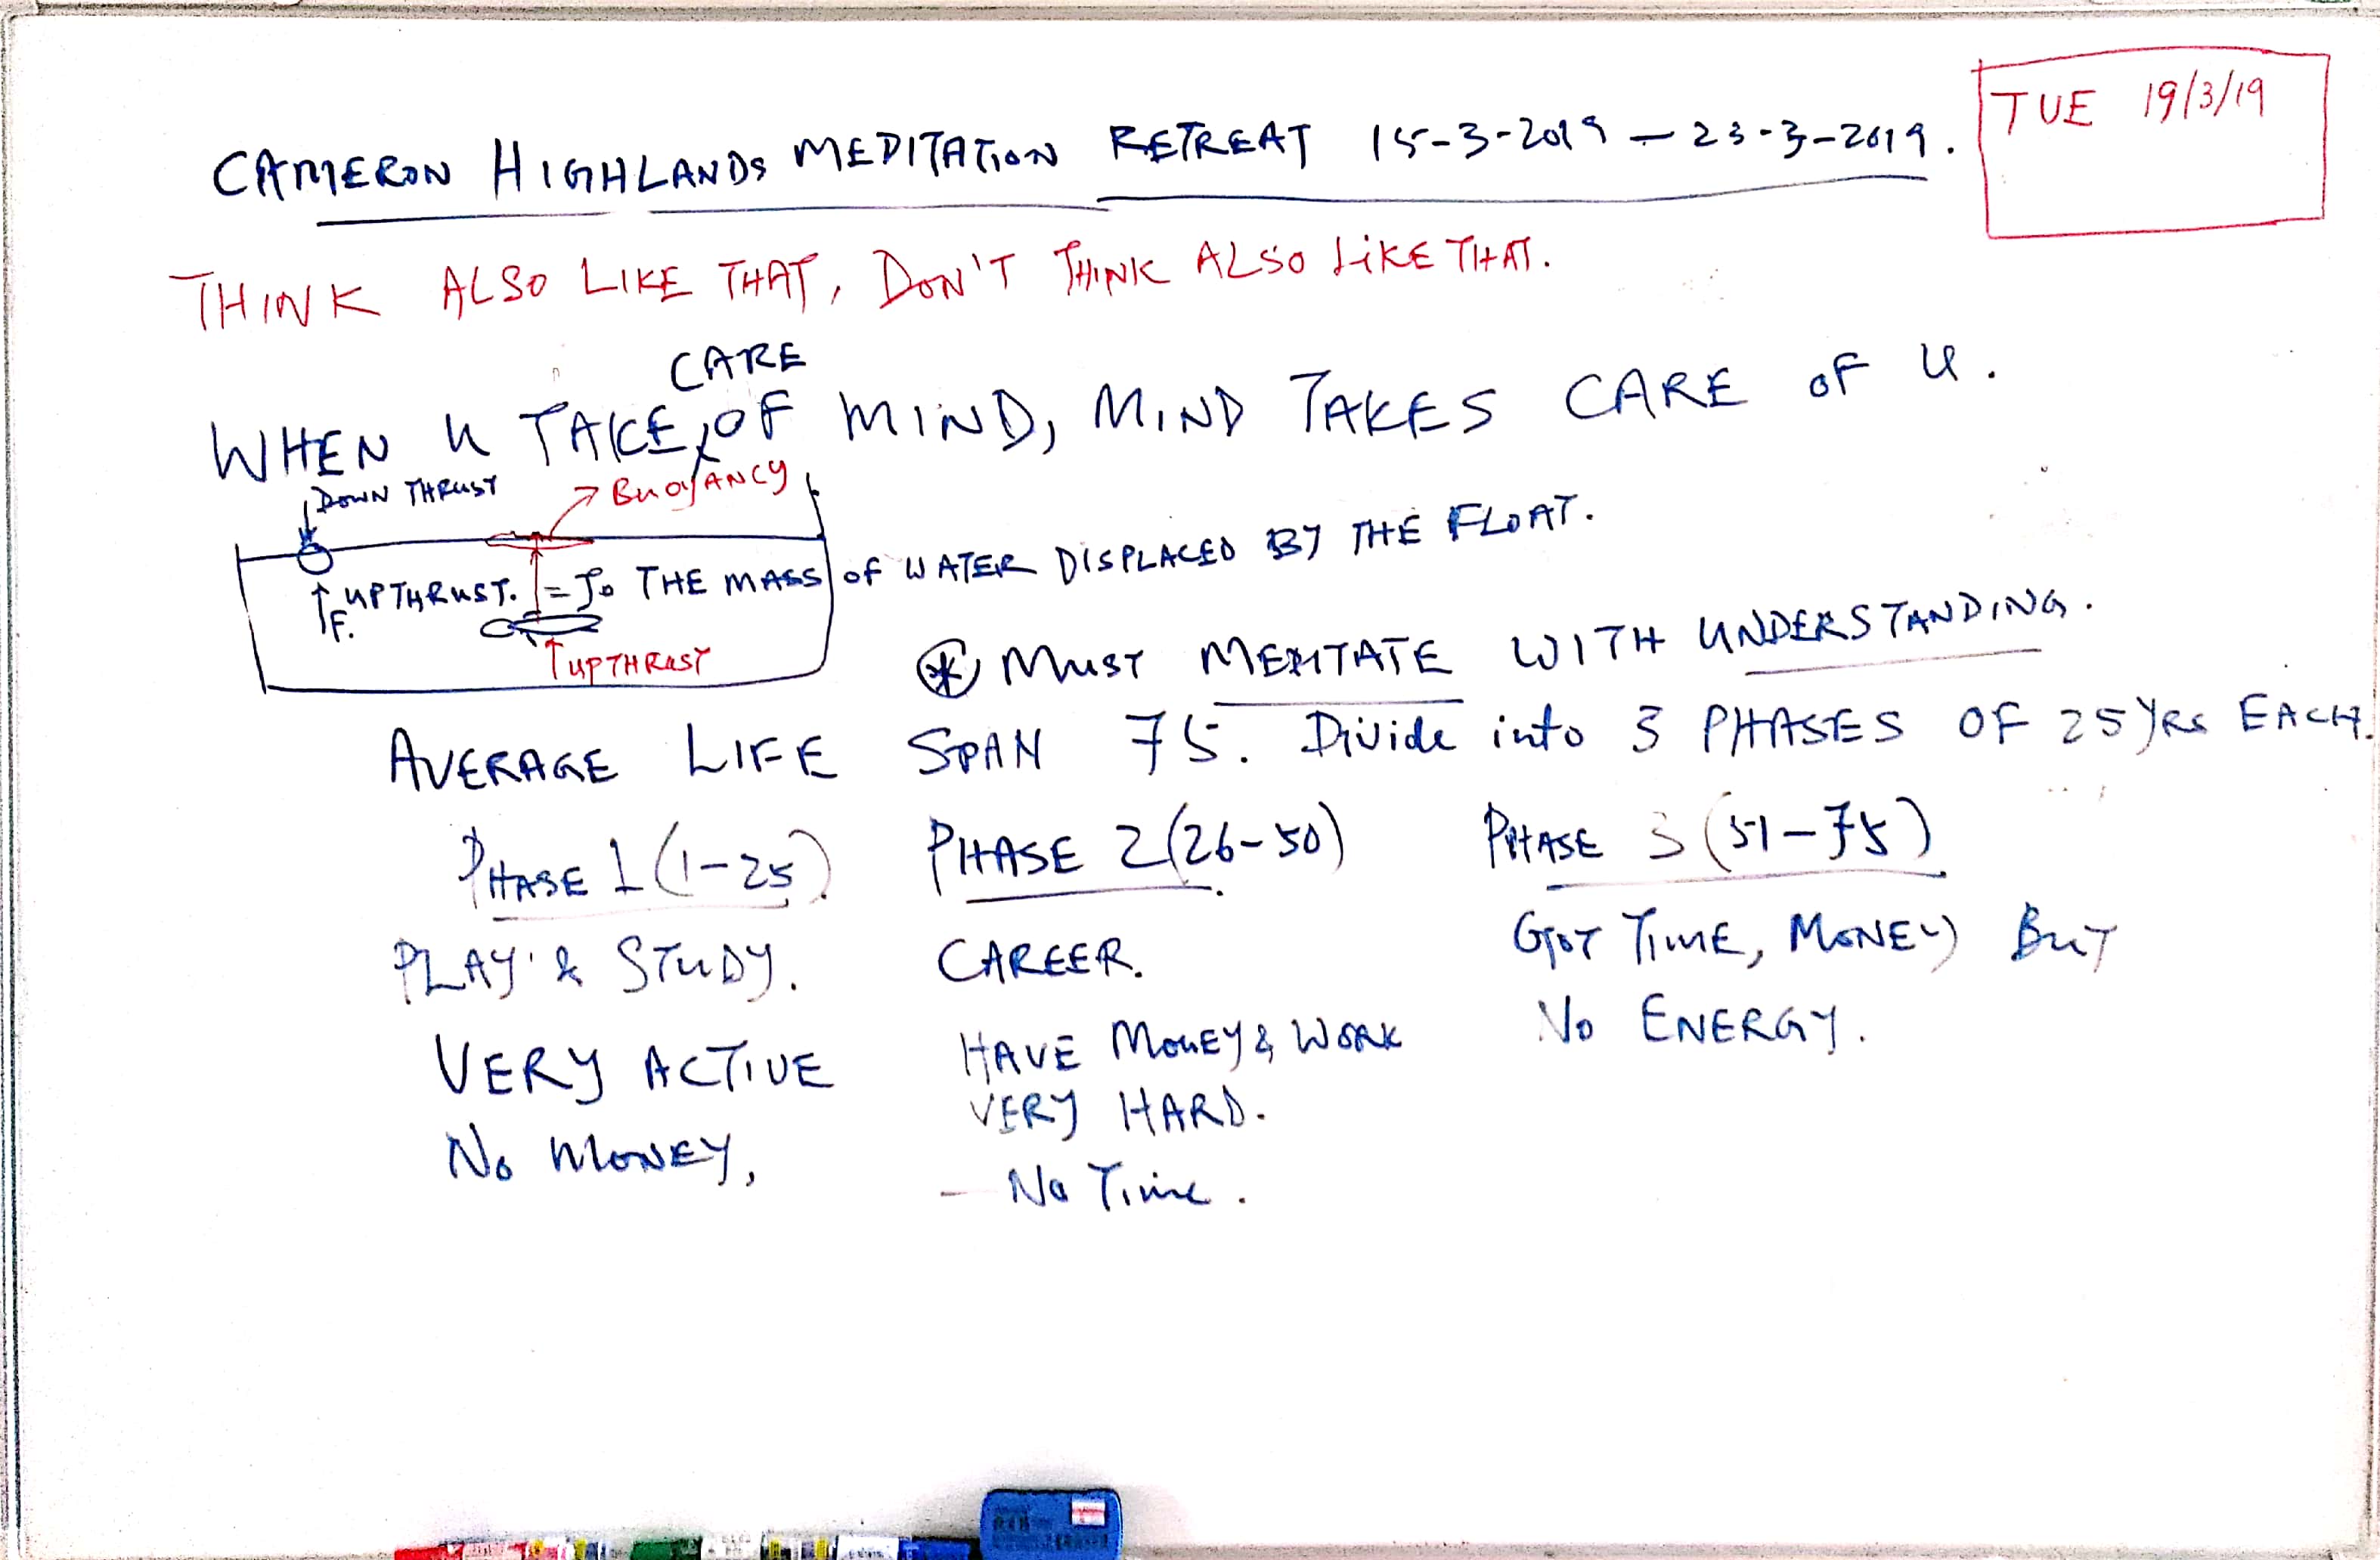 TUE 19/3/19
CAMERON HIGHLANDS MEDITATION RETREAT 15-3-2019 – 23-3-2019.
THINK ALSO LIKE THAT, DON'T THINK ALSO LIKE THAT.
CARE
WHEN U TAKE OF MIND, MIND TAKES CARE OF U.
DOWN THRUST
BUOYANCY
UPTHRUST. = To THE MASS OF WATER DISPLACED BY THE FLOAT.
F.
UPTHRUST
* MUST MEDITATE WITH UNDERSTANDING.
AVERAGE LIFE SPAN 75. Divide into 3 PHASES OF 25 YRS EACH.
PHASE 1 (1-25) PHASE 2 (26-50) PHASE 3 (51-75)
PLAY & STUDY. CAREER. GOT TIME, MONEY BUT
VERY ACTIVE HAVE MONEY & WORK NO ENERGY.
VERY HARD.
NO MONEY,
– No Time.